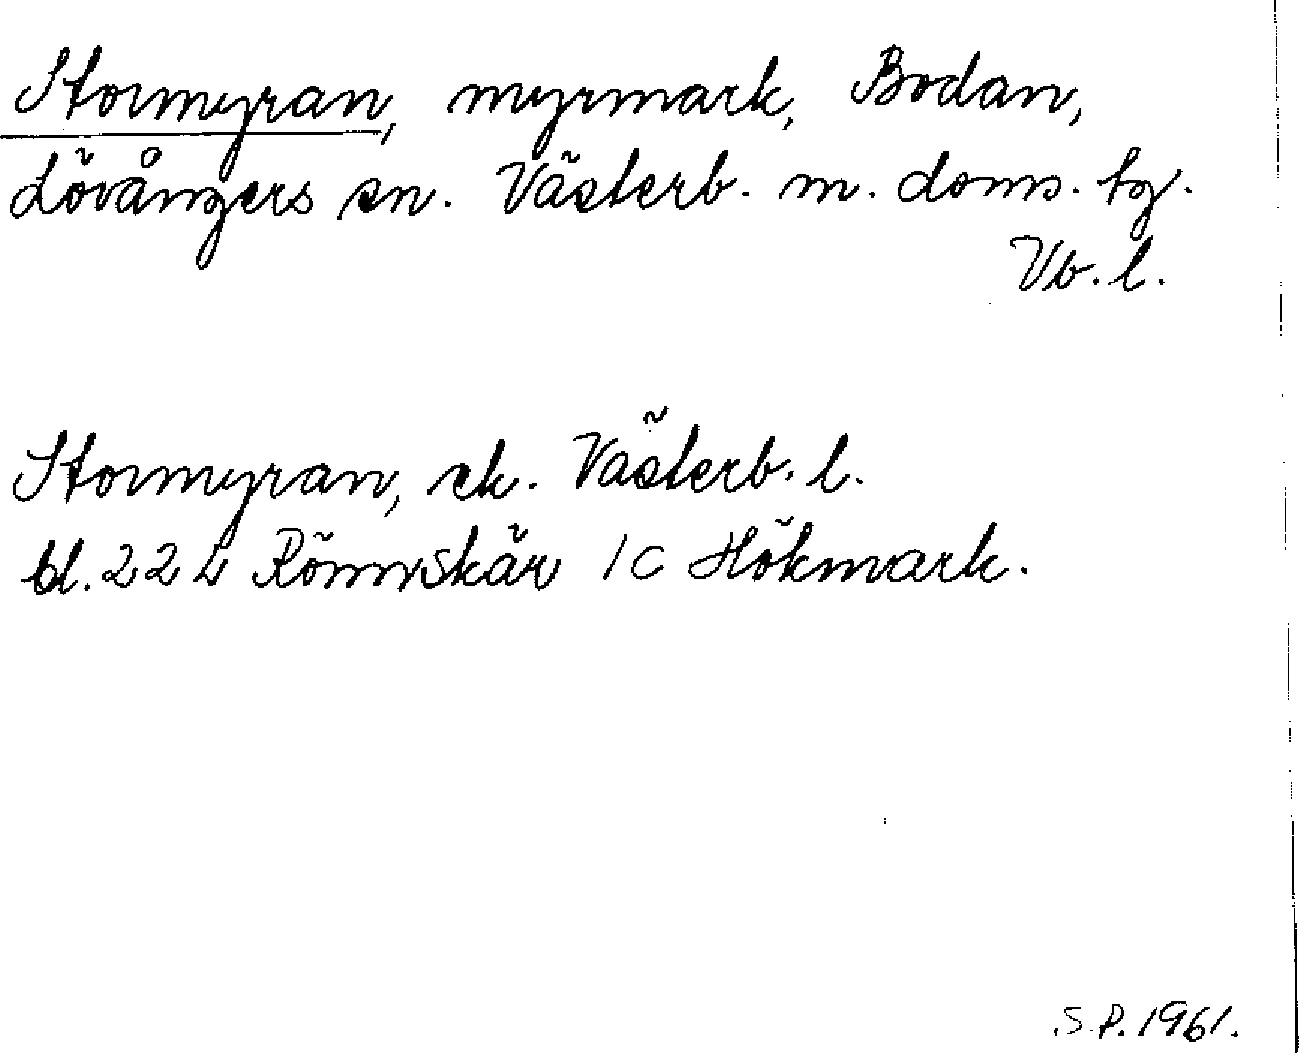 Stormyran, myrmark, Bodan,
Lövångers sn. Västerb. m. doms. tg.
Vb. l.
Stormyran, ek. Västerb. l.
bl. 22 L Rönnskär 1c Hökmark.
S.P. 1961.